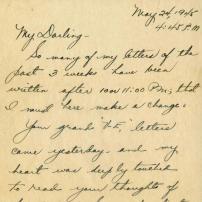 May 24, 1945
4:45 P.M
My Darling-
So many of my letters of the
past 3 weeks have been
written after 10 or 11:00 P.M; that
I must here make a change.
Your grand letters
came yesterday and my
heart was deeply touched
to read your thoughts of